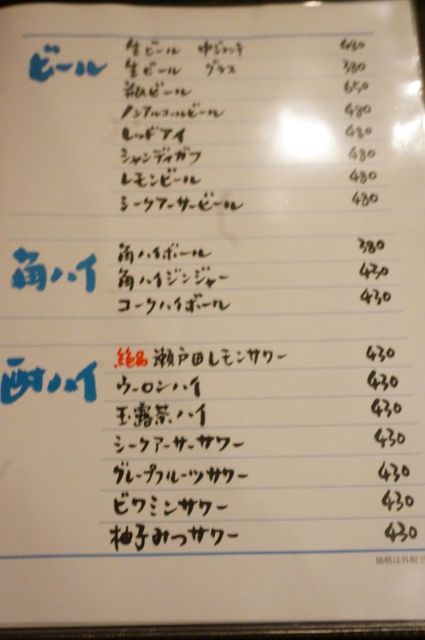 ビール
生ビール 中ジョッキ 480
生ビール グラス 380
瓶ビール 650
ノンアルコールビール 480
レッドアイ 480
シャンディガフ 480
レモンビール 480
シークアーサービール 480
角ハイ
角ハイボール 380
角ハイジンジャー 430
コークハイボール 430
酎ハイ
絶品 瀬戸田レモンサワー 430
ウーロンハイ 430
玉露茶ハイ 430
シークアーサーサワー 430
グレープフルーツサワー 430
ビワミンサワー 430
柚子みつサワー 430
価格は外税で